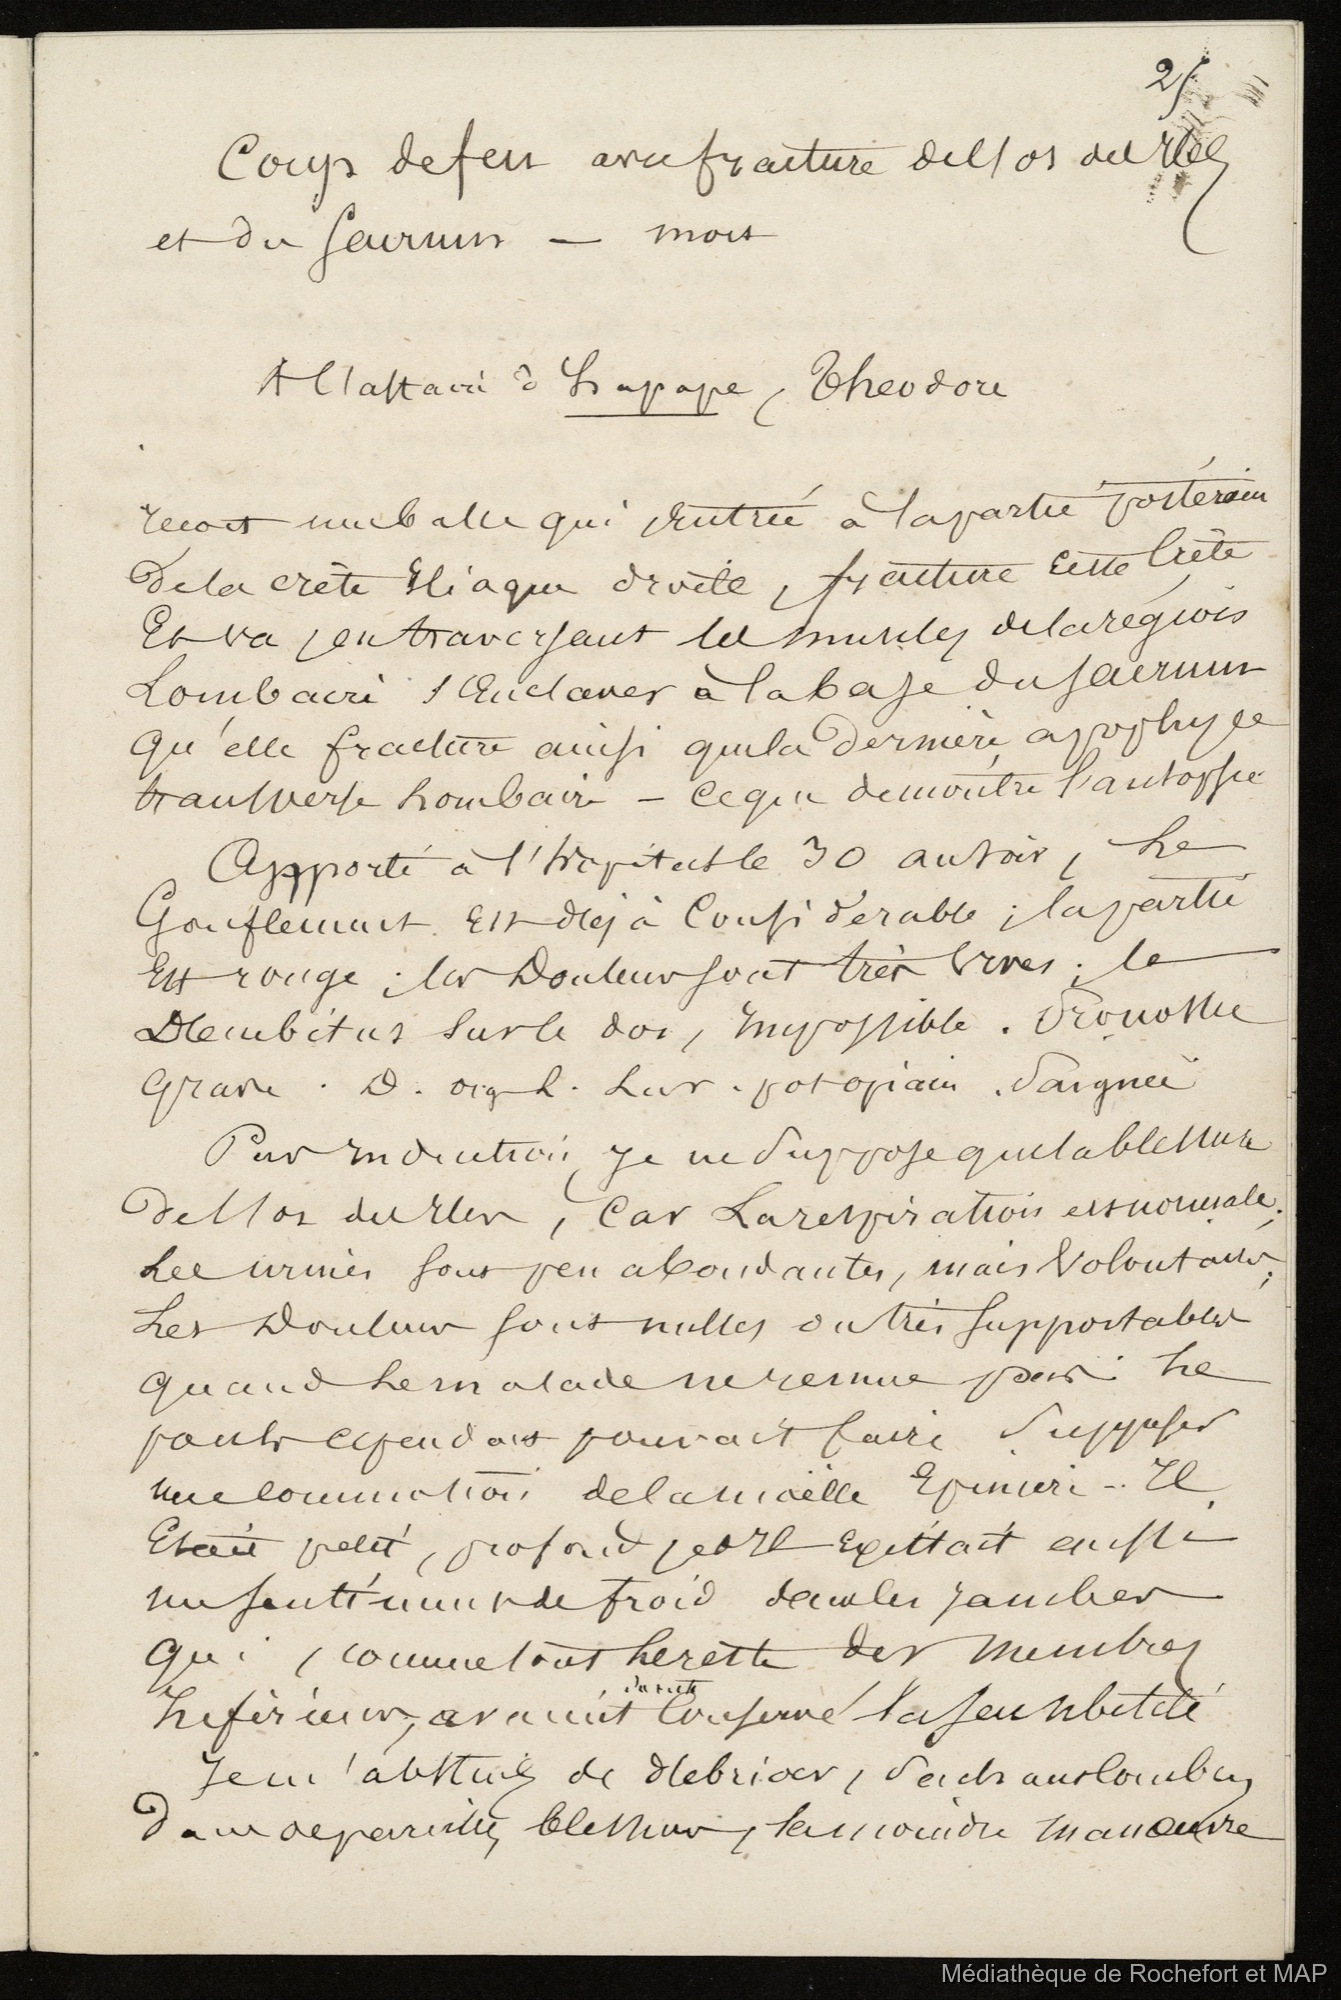 25
Coup de feu avec fracture de l'os des Iles
et du Sacrum — mort
A l'affaire de Papape, Théodore
reçoit une balle qui, entrée à la partie postérieure
De la crête Iliaque droite, fracture cette Crête
Et va, en traversant les muscles de la région
Lombaire s'enclaver à la base du Sacrum
Qu'elle fracture ainsi que la dernière apophyse
transverse Lombaire — Ce que démontre l'autopsie
Apporté à l'hopital le 30 au soir, Le
Gonflement Est déjà Considérable ; la partie
Est rouge ; les Douleurs sont très Vives ; le
Décubitus Sur le dos, Impossible. Pronostic
Grave. D. orge L. Lav. pot opiacée. Saignée
Par induction, Je ne Suppose que la blessure
De l'os des Iles, Car La respiration est normale ;
Les urines sont peu abondantes, mais Volontaires ;
Les Douleurs sont nulles ou très supportables
quand Le malade ne remue pas. Le
pouls cependant pouvait faire Supposer
une commotion de la moëlle Epinière .. Il
Etait petit, profond, et Il Existait aussi
un sentiment de froid dans les jambes
Qui, comme tout Le reste des Membres
Inférieurs, avaient Conservé la sensibilité
Je m'abstins de débrider,
Dans de pareilles blessures, la moindre manœuvre
Médiathèque de Rochefort et MAP